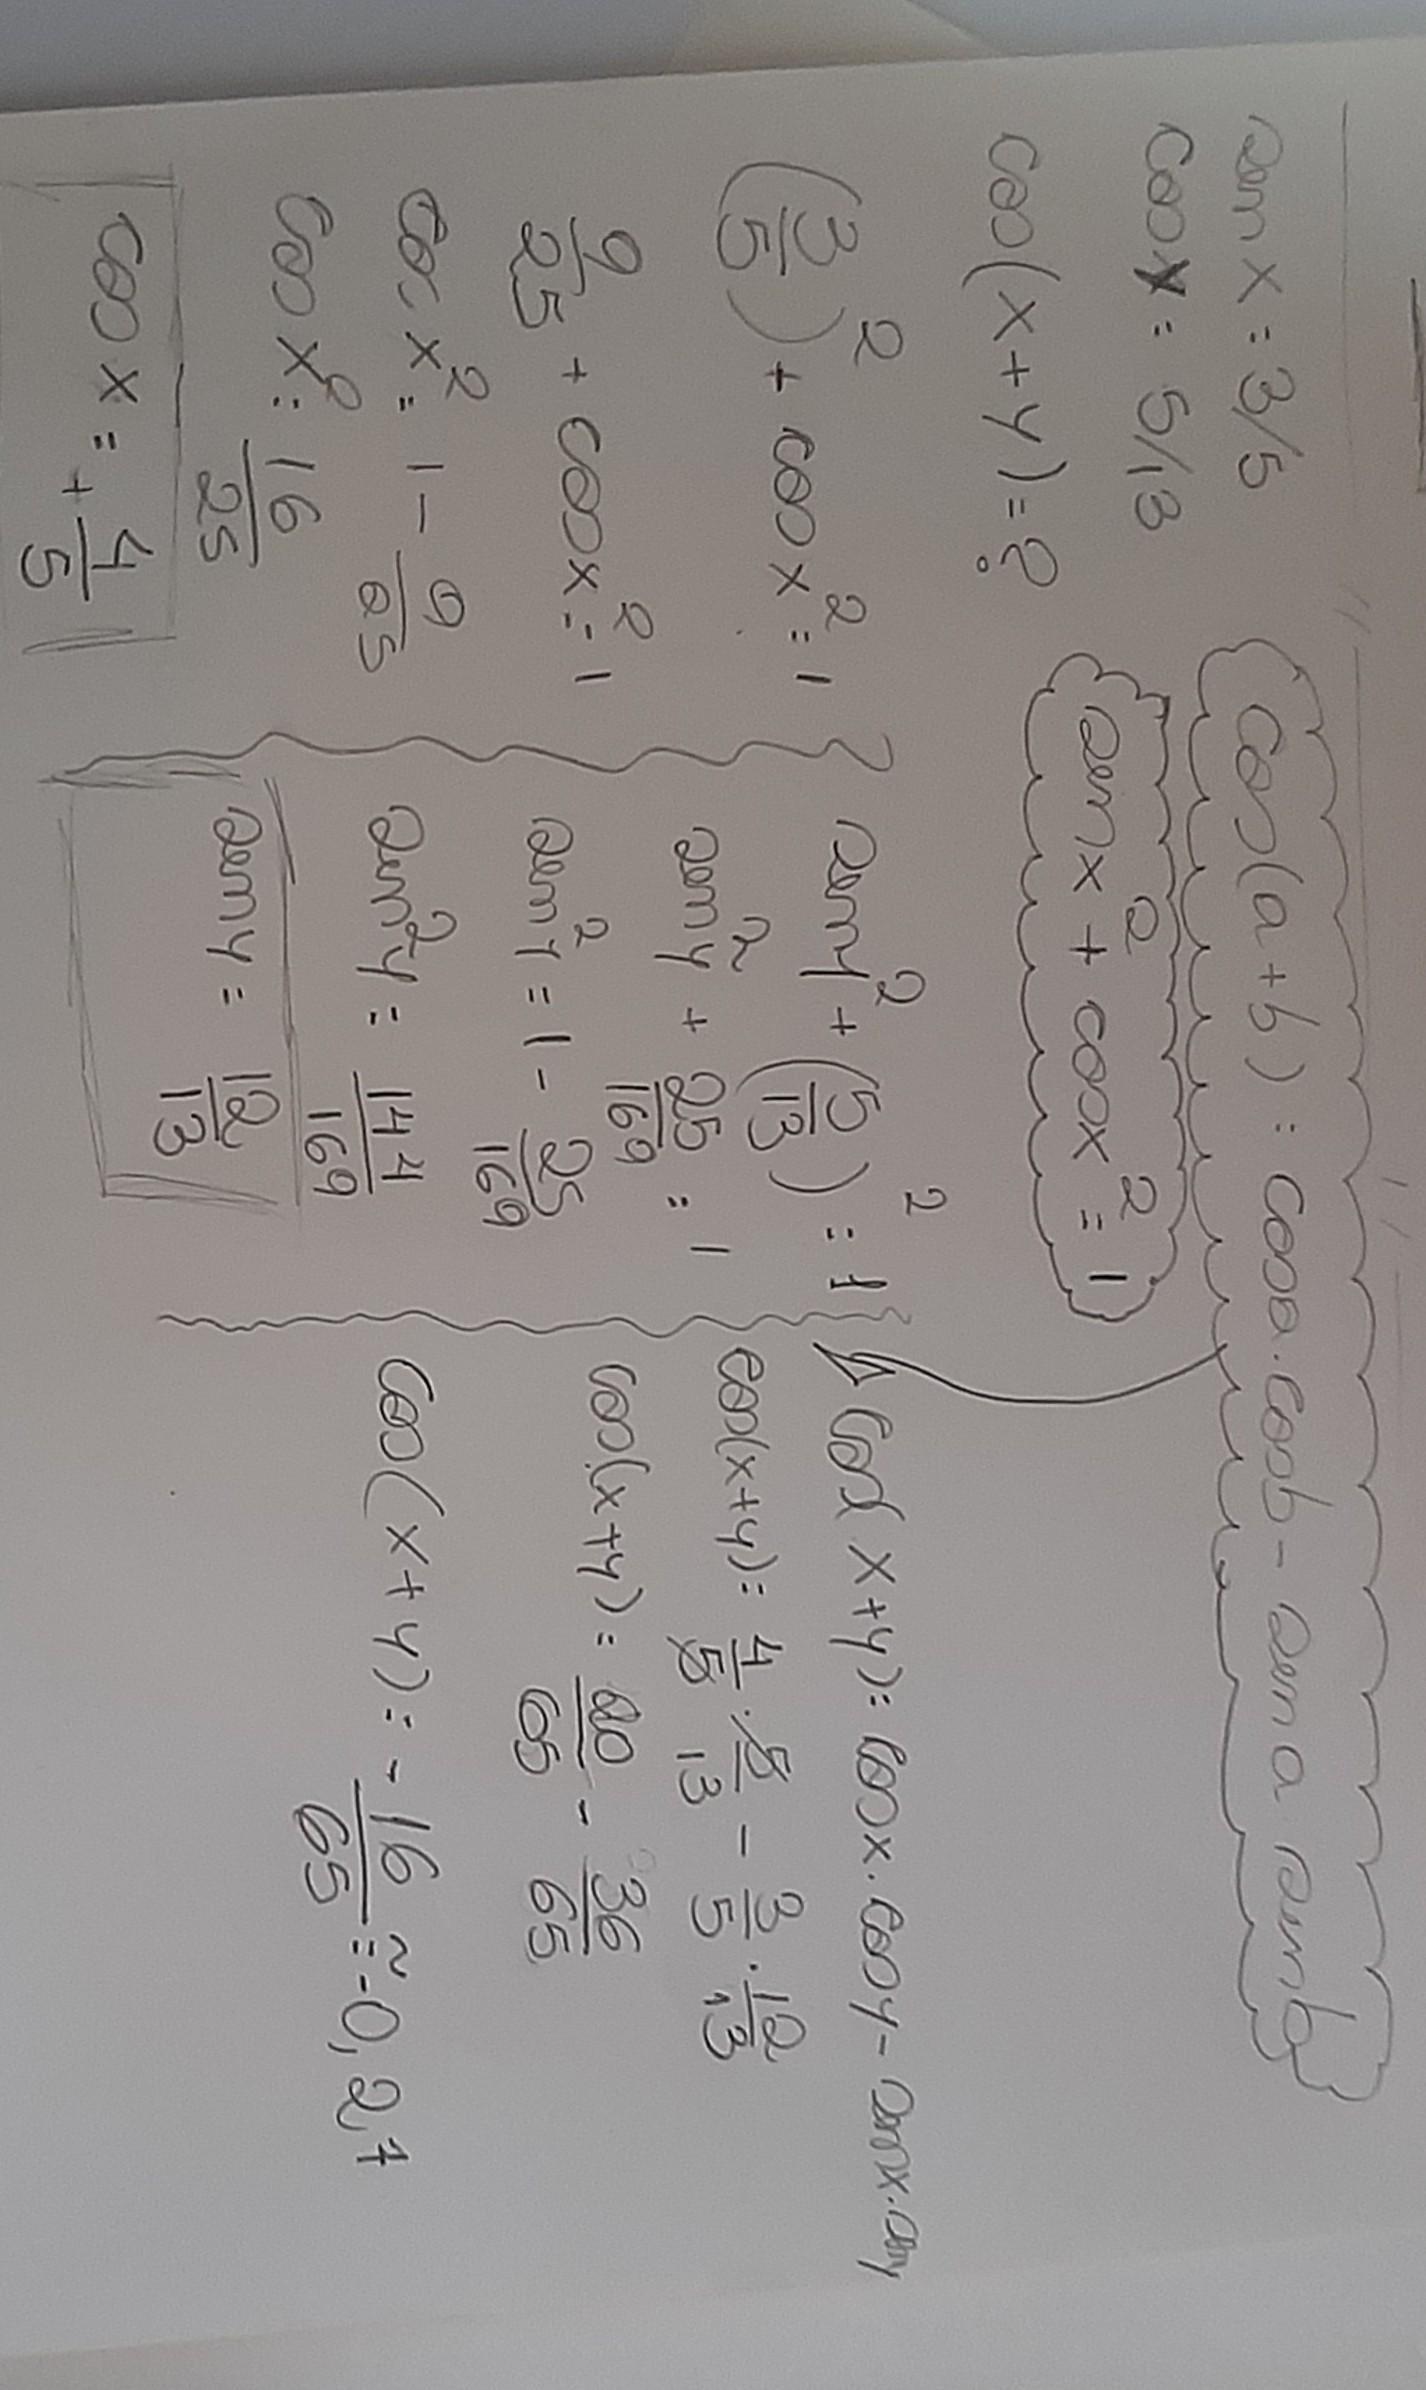 sen x = 3/5
cos y = 5/13
cos(x+y) = ?
cos(a+b) = cosa.cosb - sen a sen b
senx² + cosx² = 1
(3/5)² + cos x² = 1
9/25 + cosx² = 1
cos x² = 1 - 9/25
cos x² = 16/25
cos x = + 4/5
seny² + (5/13)² = 1
seny² + 25/169 = 1
seny² = 1 - 25/169
sen²y = 144/169
seny = 12/13
cos(x+y) = cosx.cosy - senx.seny
cos(x+y) = 4/5 . 5/13 - 3/5 . 12/13
cos(x+y) = 20/65 - 36/65
cos(x+y) = -16/65 ≅ -0,27